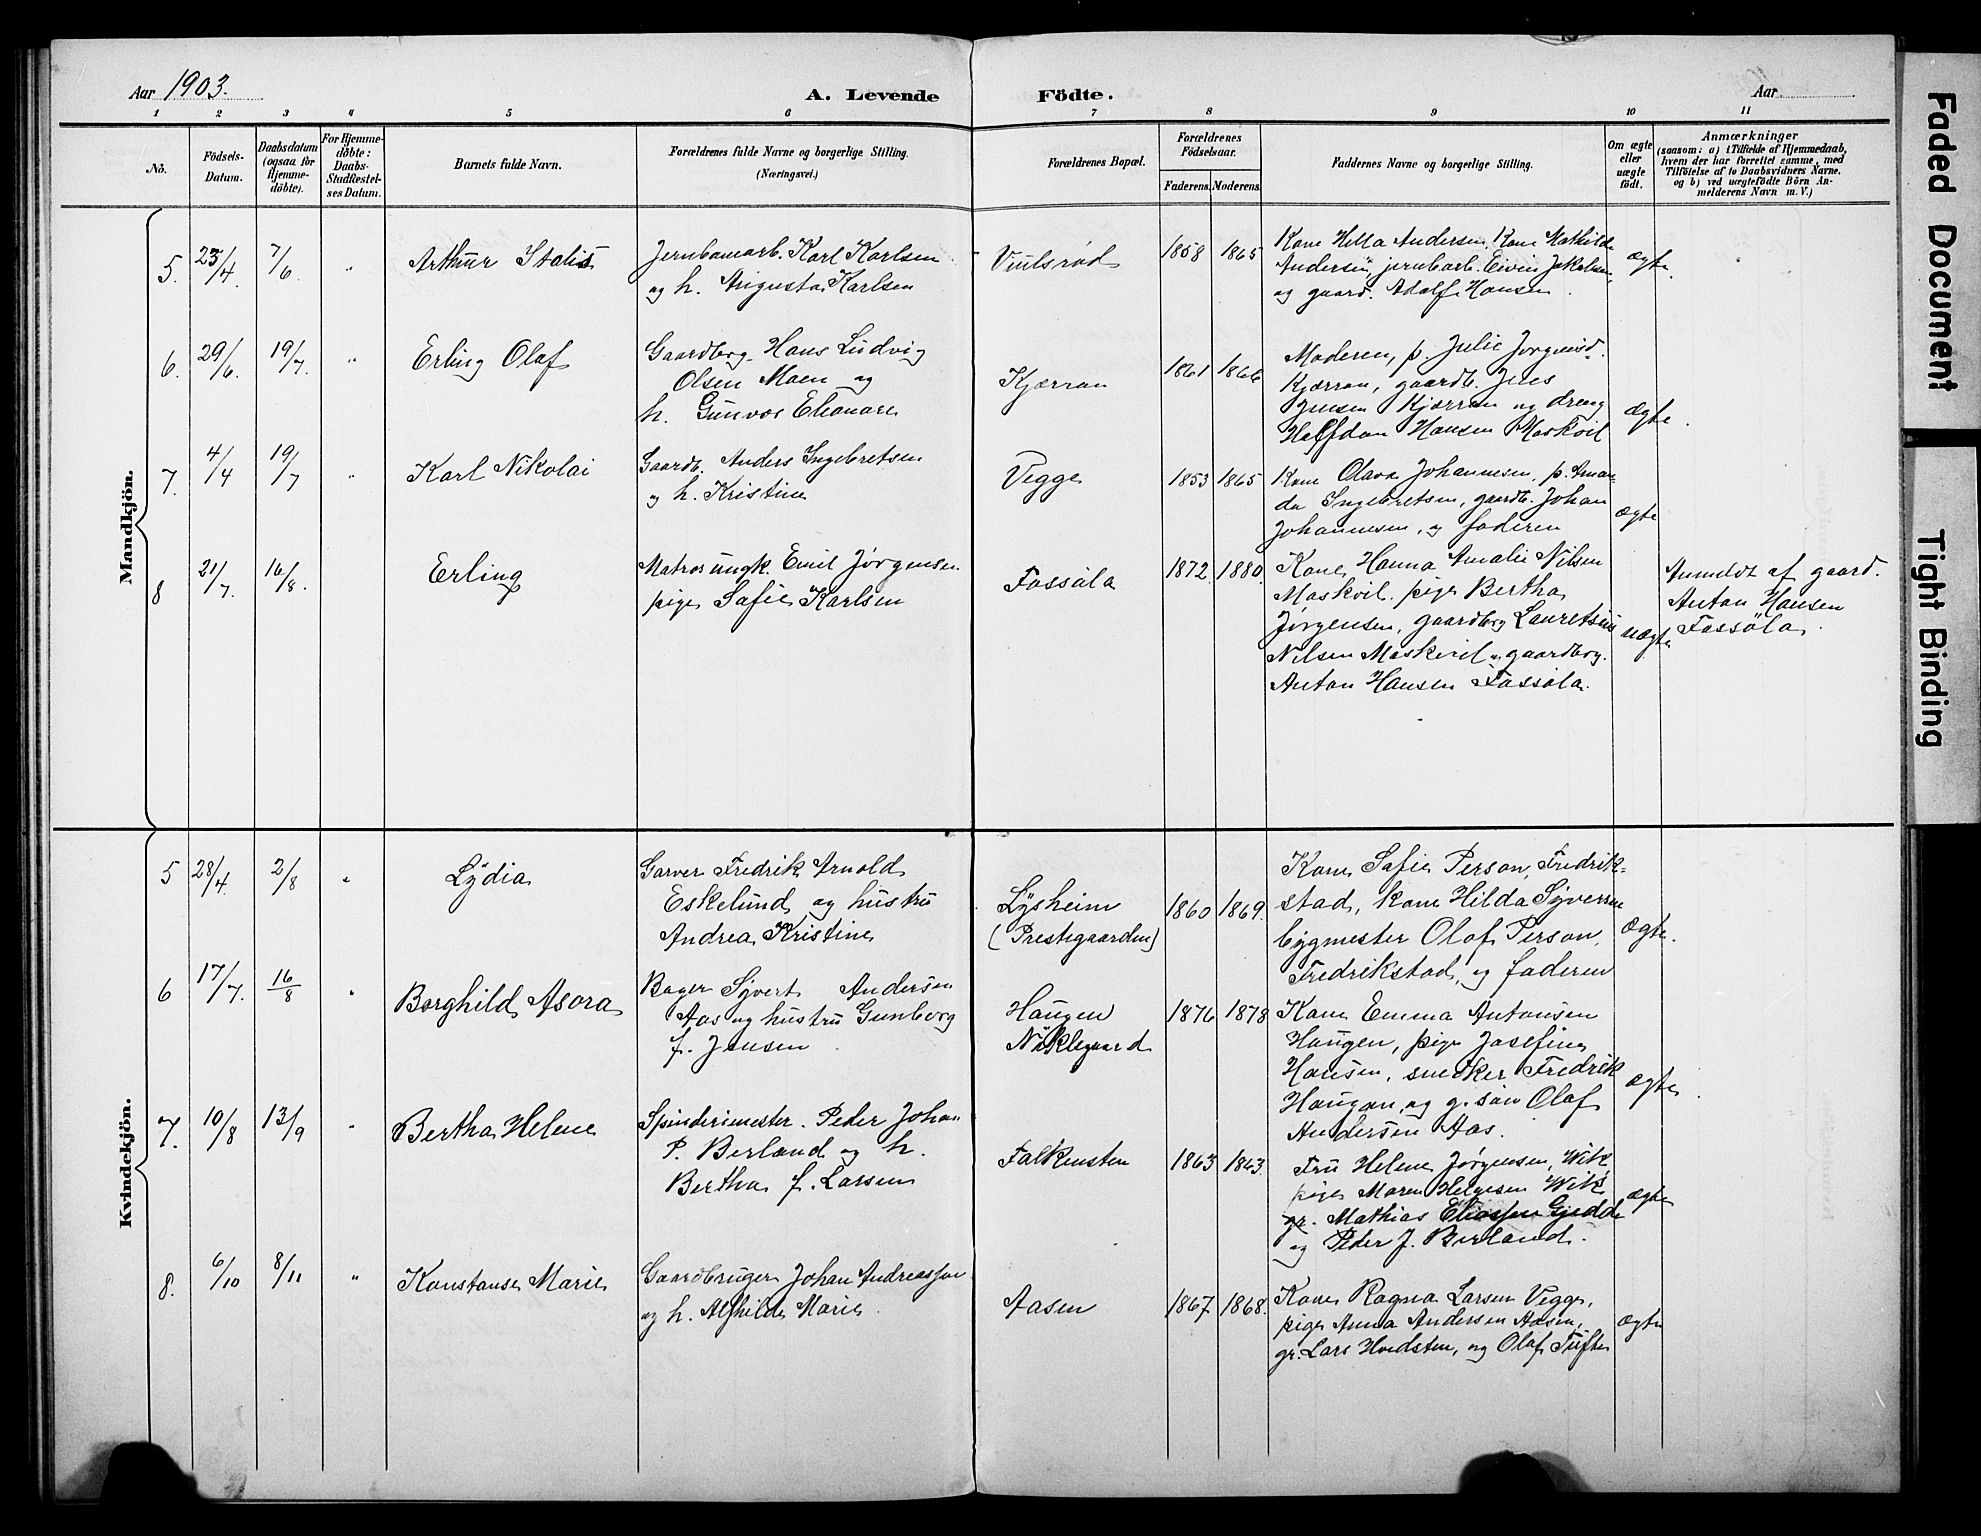 Aar 1903.
A. Levende Födte.
Aar
1 2 3 4 5 6 7 8 9 10 11
No.
Födsels-
Datum.
Daabsdatum
(ogsaa for
Hjemme-
döbte).
For Hjemme-
döbte:
Daabs-
Stadfæstel-
ses Datum.
Barnets fulde Navn.
Forældrenes fulde Navne og borgerlige Stilling.
(Næringsvei.)
Forældrenes Bopæl.
Forældrenes
Födselsaar.
Faderens. Moderens.
Faddernes Navne og borgerlige Stilling.
Om ægte
eller
uægte
födt.
Anmærkninger
(saasom: a) i Tilfælde af Hjemmedaab,
hvem der har forrettet samme, med
Tilföielse af to Daabsvidners Navne,
og b) ved uægtefödte Börn An-
melderens Navn m. V.)
Mandkjön.
5. 23/4. 7/6. "
Arthur
Jernbanearb. Karl Karlsen
og h. Augusta Karlsen
1858 1865
Kone Hella Andersen, Kone Mathilde
Andersen, jernbarb. Eivin Jakobsen,
og gaard. Adolf Hansen.
ægte.
6. 29/6. 19/7. "
Erling Olaf
Gaardbrg. Hans Ludvig
Olsen Moen og
h. Gunvor Eleonare
Kjærran
1861 1866
Moderen, p. Julie Jørgensd.
Kjærran, gaardb. Jens
Jensen Kjærran og dreng
Halfdan Hansen Maskvil
ægte.
7. 4/4 19/7 "
Karl Nikolai
Gaardb. Anders Ingebretsen
og h. Kristine
Vegge
1853 1865
Kone Olava Johannesen, p. Aman-
da Ingebretsen, gaardb. Johan
Johannesen, og faderen
ægte
8 21/7. 16/8.
Erling
Matros ungk. Emil Jørgensen
pige Safie Karlsen
Fossöla
1872 1880.
Kone Hanna Amalie Nilsen
Maskvil. pige Bertha
Jørgensen, gaardbrg Lauretsius
Nilsen Maskvil og gaardbrg.
Anton Hansen Fossöla.
uægte
Anmeldt af gaard.
Anton Hansen
Fossöla.
Kvindekjön.
5 28/4. 2/8 "
Lydia
Garver Fredrik Arnold
Eskelund og hustru
Andrea Kristine
Lysheim
(Prestegaarden)
1860 1869.
Kone Safie Person, Fredrik-
stad, kone Hilda Syversen
bygmester Olaf Person,
Fredrikstad, og faderen
ægte.
6 17/7. 16/8 "
Borghild Asora
Bager Syvert Andersen
Aas og hustru Gunborg
f. Jensen
Haugen
Nøklegaard
1876 1878
Kone Emma Antonsen
Haugen, pige Josefine
Hansen, snedker Fredrik
Haugen, og g. søn Olaf
Andersen Aas.
ægte.
7. 10/8 13/9 "
Bertha Helene
Spinderimester. Peder Johan
P. Berland og h.
Bertha f. Larsen
Falkensten
1863 1843.
Fru Helene Jørgensen, Wik,
pige Maren Helgesen Wik
gr. Mathias Eliassen Gjedde
og Peder J. Berland.
ægte
8. 6/10 8/11 "
Konstanse Marie
Gaardbruger Johan Andreassen
og h. Alfhilde Marie.
Aasen
1867 1868.
Kone Ragna Larsen Vegge,
pige Anna Andersen Aasen,
gr. Lars Hvidsten, og Olaf Tufte
ægte
Faded Document
Tight Binding